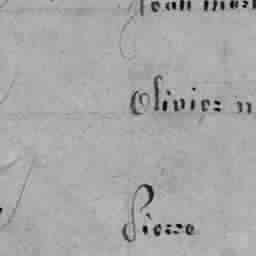 Jean
Olivier
Pierre